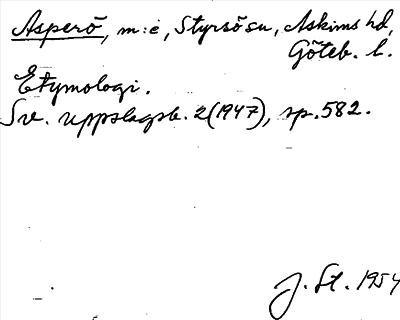 Asperö, m:e, Styrsö sn, Askims hd,
Göteb. l.
Etymologi.
Sv. uppslagsb. 2 (1947), sp. 582.
J. St. 1954